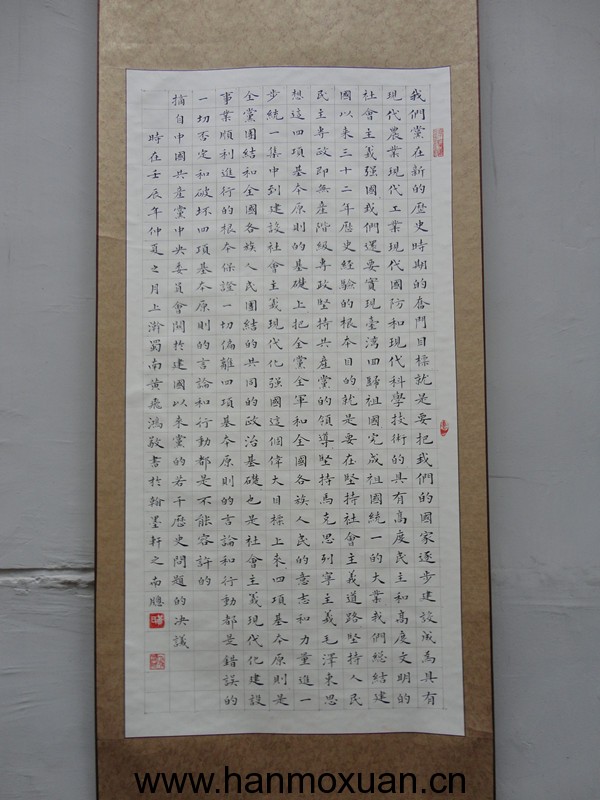 我們黨在新的歷史時期的奮鬥目標就是要把我們的國家逐步建設成為具有
現代農業現代工業現代國防和現代科學技術的具有高度民主和高度文明的
社會主義强國我們還要實現臺灣回歸祖國完成祖國統一的大業我們総結建
國以來三十二年歷史經驗的根本目的就是要在堅持社會主義道路堅持人民
民主專政即無產階級專政堅持共產黨的領導堅持馬克思列寧主義毛澤東思
想這四項基本原則的基礎上把全黨全軍和全國各族人民的意志和力量進一
步統一集中到建設社會主義現代化强國這個偉大目標上來四項基本原則是
全黨團結和全國各族人民團結的共同的政治基礎也是社會主義現代化建設
事業順利進行的根本保證一切偏離四項基本原則的言論和行動都是錯誤的
一切否定和破坏四項基本原則的言論和行動都是不能容許的
摘自中國共產黨中央委員會關於建國以來黨的若干歷史問題的决議
時在壬辰年仲夏之月上澣蜀南黄飛鴻敬書於翰墨軒之南牕
www.hanmoxuan.cn